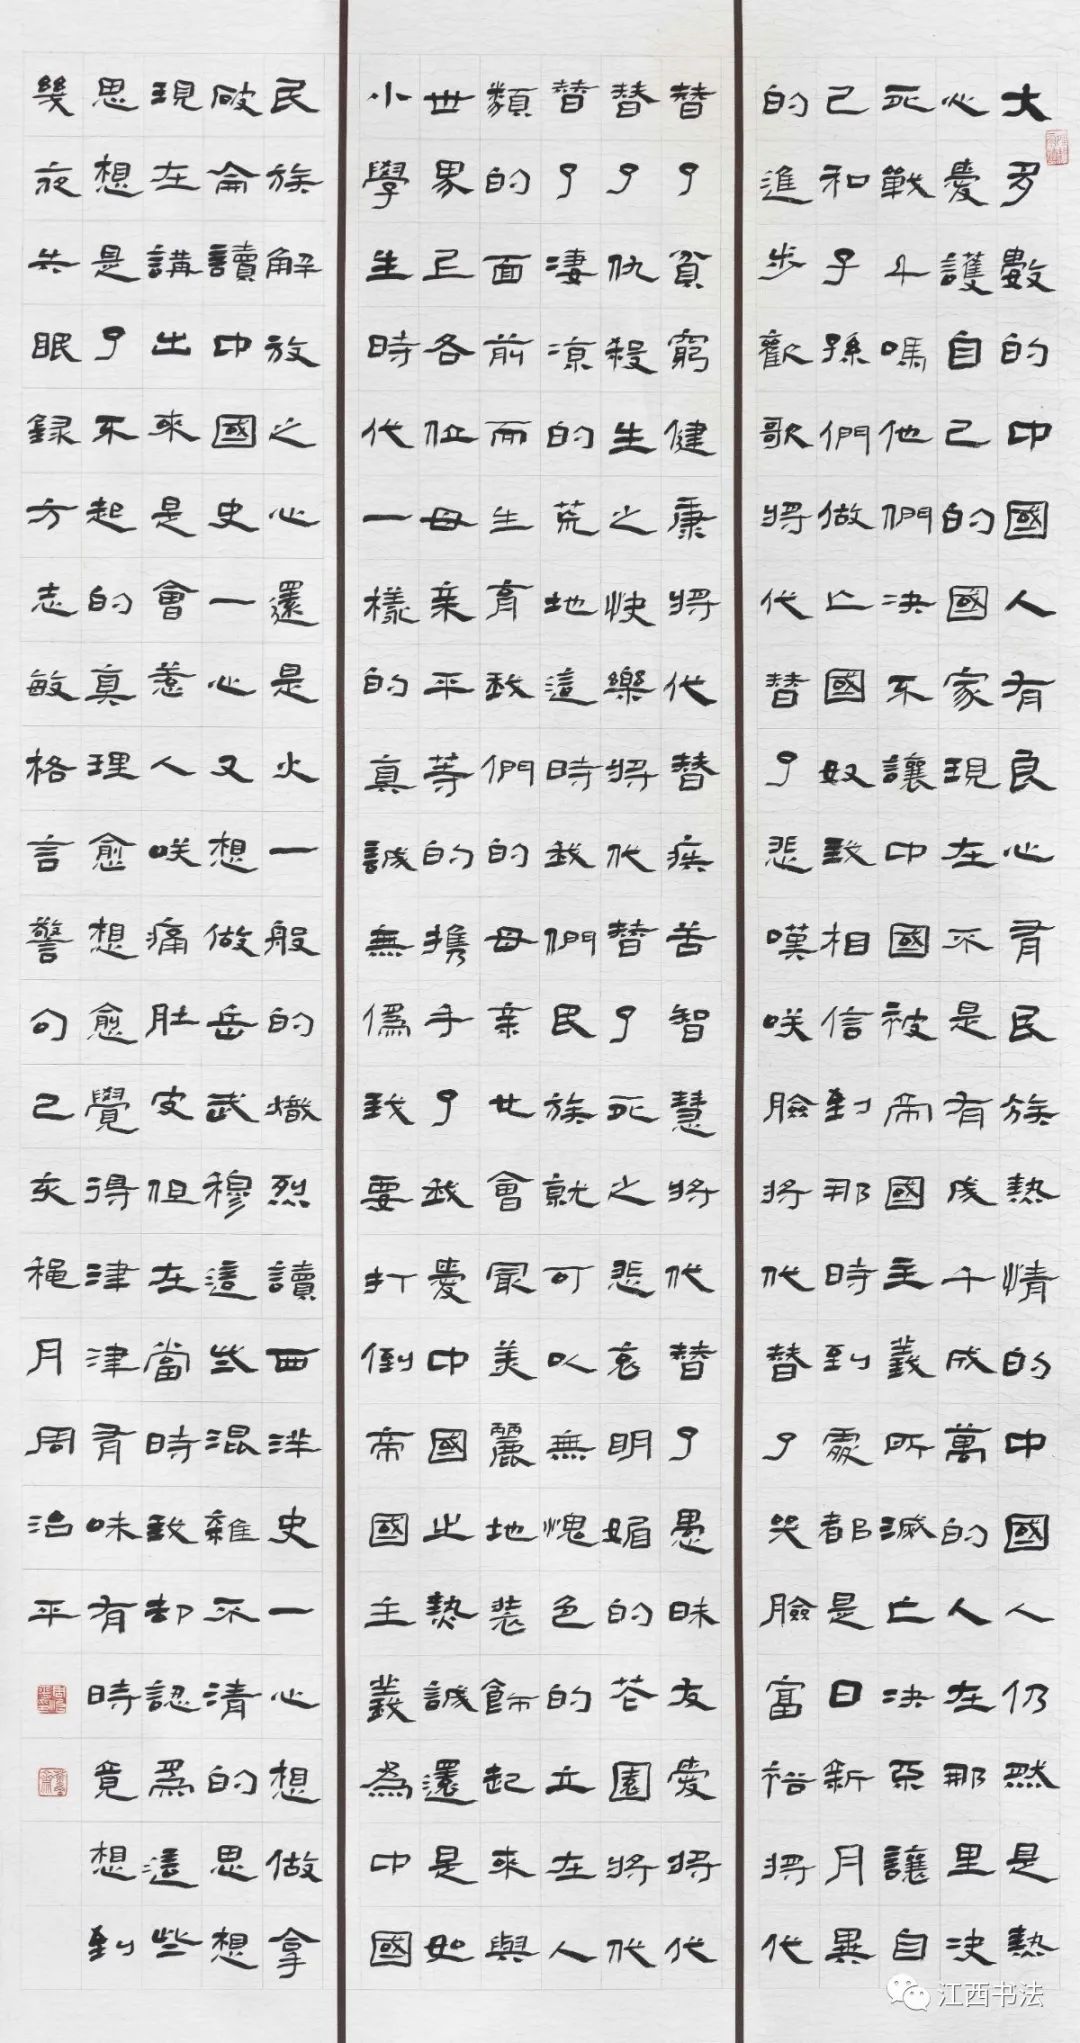 大多數的中國人有良心有民族熱情的中國人仍然是熱
心愛護自己的國家現在不是有成千成萬的人在那里決
死戰斗嗎他們决不讓中國被帝國主義所滅亡决不讓自
己和子孫們做亡國奴我相信到那時到處都是日新月異
的進步歡歌將代替了悲嘆笑臉將代替了哭臉富裕將代
替了貧窮健康將代替疾苦智慧將代替了愚昧友愛將代
替了仇殺生之快樂將代替了死之悲哀明媚的花園將代
替了凄凉的荒地這時我們民族就可以無愧色的立在人
類的面前而生育我們的母亲也會最美麗地裝飾起來與
世界上各位母亲平等的攜手了我愛中國之熱誠還是如
小學生時代一樣的真誠無僞我要打倒帝國主義為中國
民族解放之心還是火一般的熾烈讀西洋史一心想做拿
破侖讀中國史一心又想做岳武穆這些混雜不清的思想
現在講出來是會惹人笑痛肚皮但在當時我却認爲這些
思想是了不起的真理愈想愈覺得津津有味有時竟想到
幾夜失眠録方志敏格言警句己亥穐月周治平
江西书法